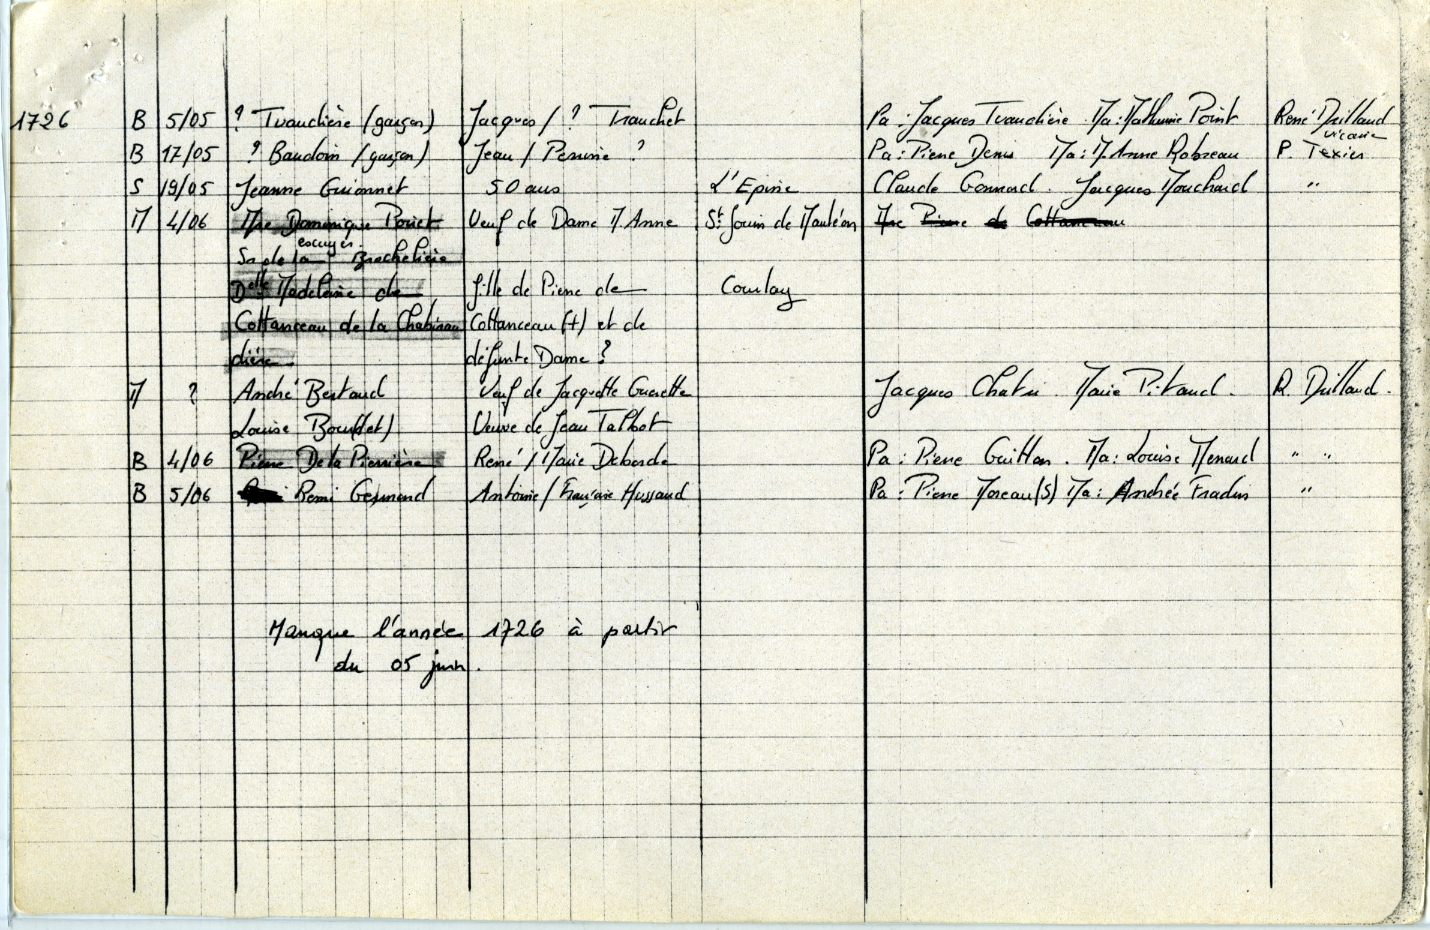 1726 B 5/05 ? Tuauchière (garçon) Jacques / ? Trauchet Pa : Jacques Tuauchière Ma : Mathurine Point René
vicaire
B 17/05 ? Baudoin (garçon) Jean / Perrine ? Pa : Pierre Denis Ma : M. Anne Robreau P. Texier
S 19/05 Jeanne Guionnet 50 ans L'Epine Claude Gonnord . Jacques Mouchard "
M 4/06 Mre Dominique Poriet Veuf de Dame M. Anne St Jouin de Mauléon Mre Pierre de Cottanceau
escuyer
Sr de la Brachelière
Delle Madeleine de fille de Pierre de Courlay
Cottanceau de la Chabirau Cottanceau (+) et de
dière défunte Dame ?
M ? André Bertaud Veuf de Jacquette Jacques Marie Pitaud . R.
Louise Bou(det) Veuve de Jean Talbot
B 4/06 Pierre De la Pierrière René / Marie Deborde Pa : Pierre Guitton . Ma : Louise Menard " "
B 5/06 Remi Germond Antoine / Française Hussaud Pa : Pierre Moreau (S) Ma : Andrée Fradin "
Manque l'année 1726 à partir
du 05 juin .